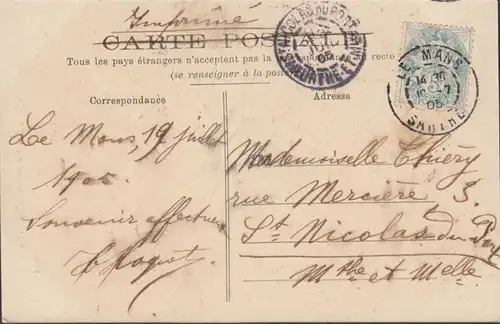 Imprimé
CARTE POSTALE
Tous les pays étrangers n'acceptent pas la recto
(se renseigner à la poste
Sᵗ NICOLAS DU PORT
MEURTHE-ET-M
05
LE MANS
14 30
7
05
SARTHE
Correspondance
Adresse
Le Mans, 19 juillet
1905
Souvenir affectueux
Mademoiselle Thiéry
rue Mercière, 3
St Nicolas du Port
Mthe et Melle